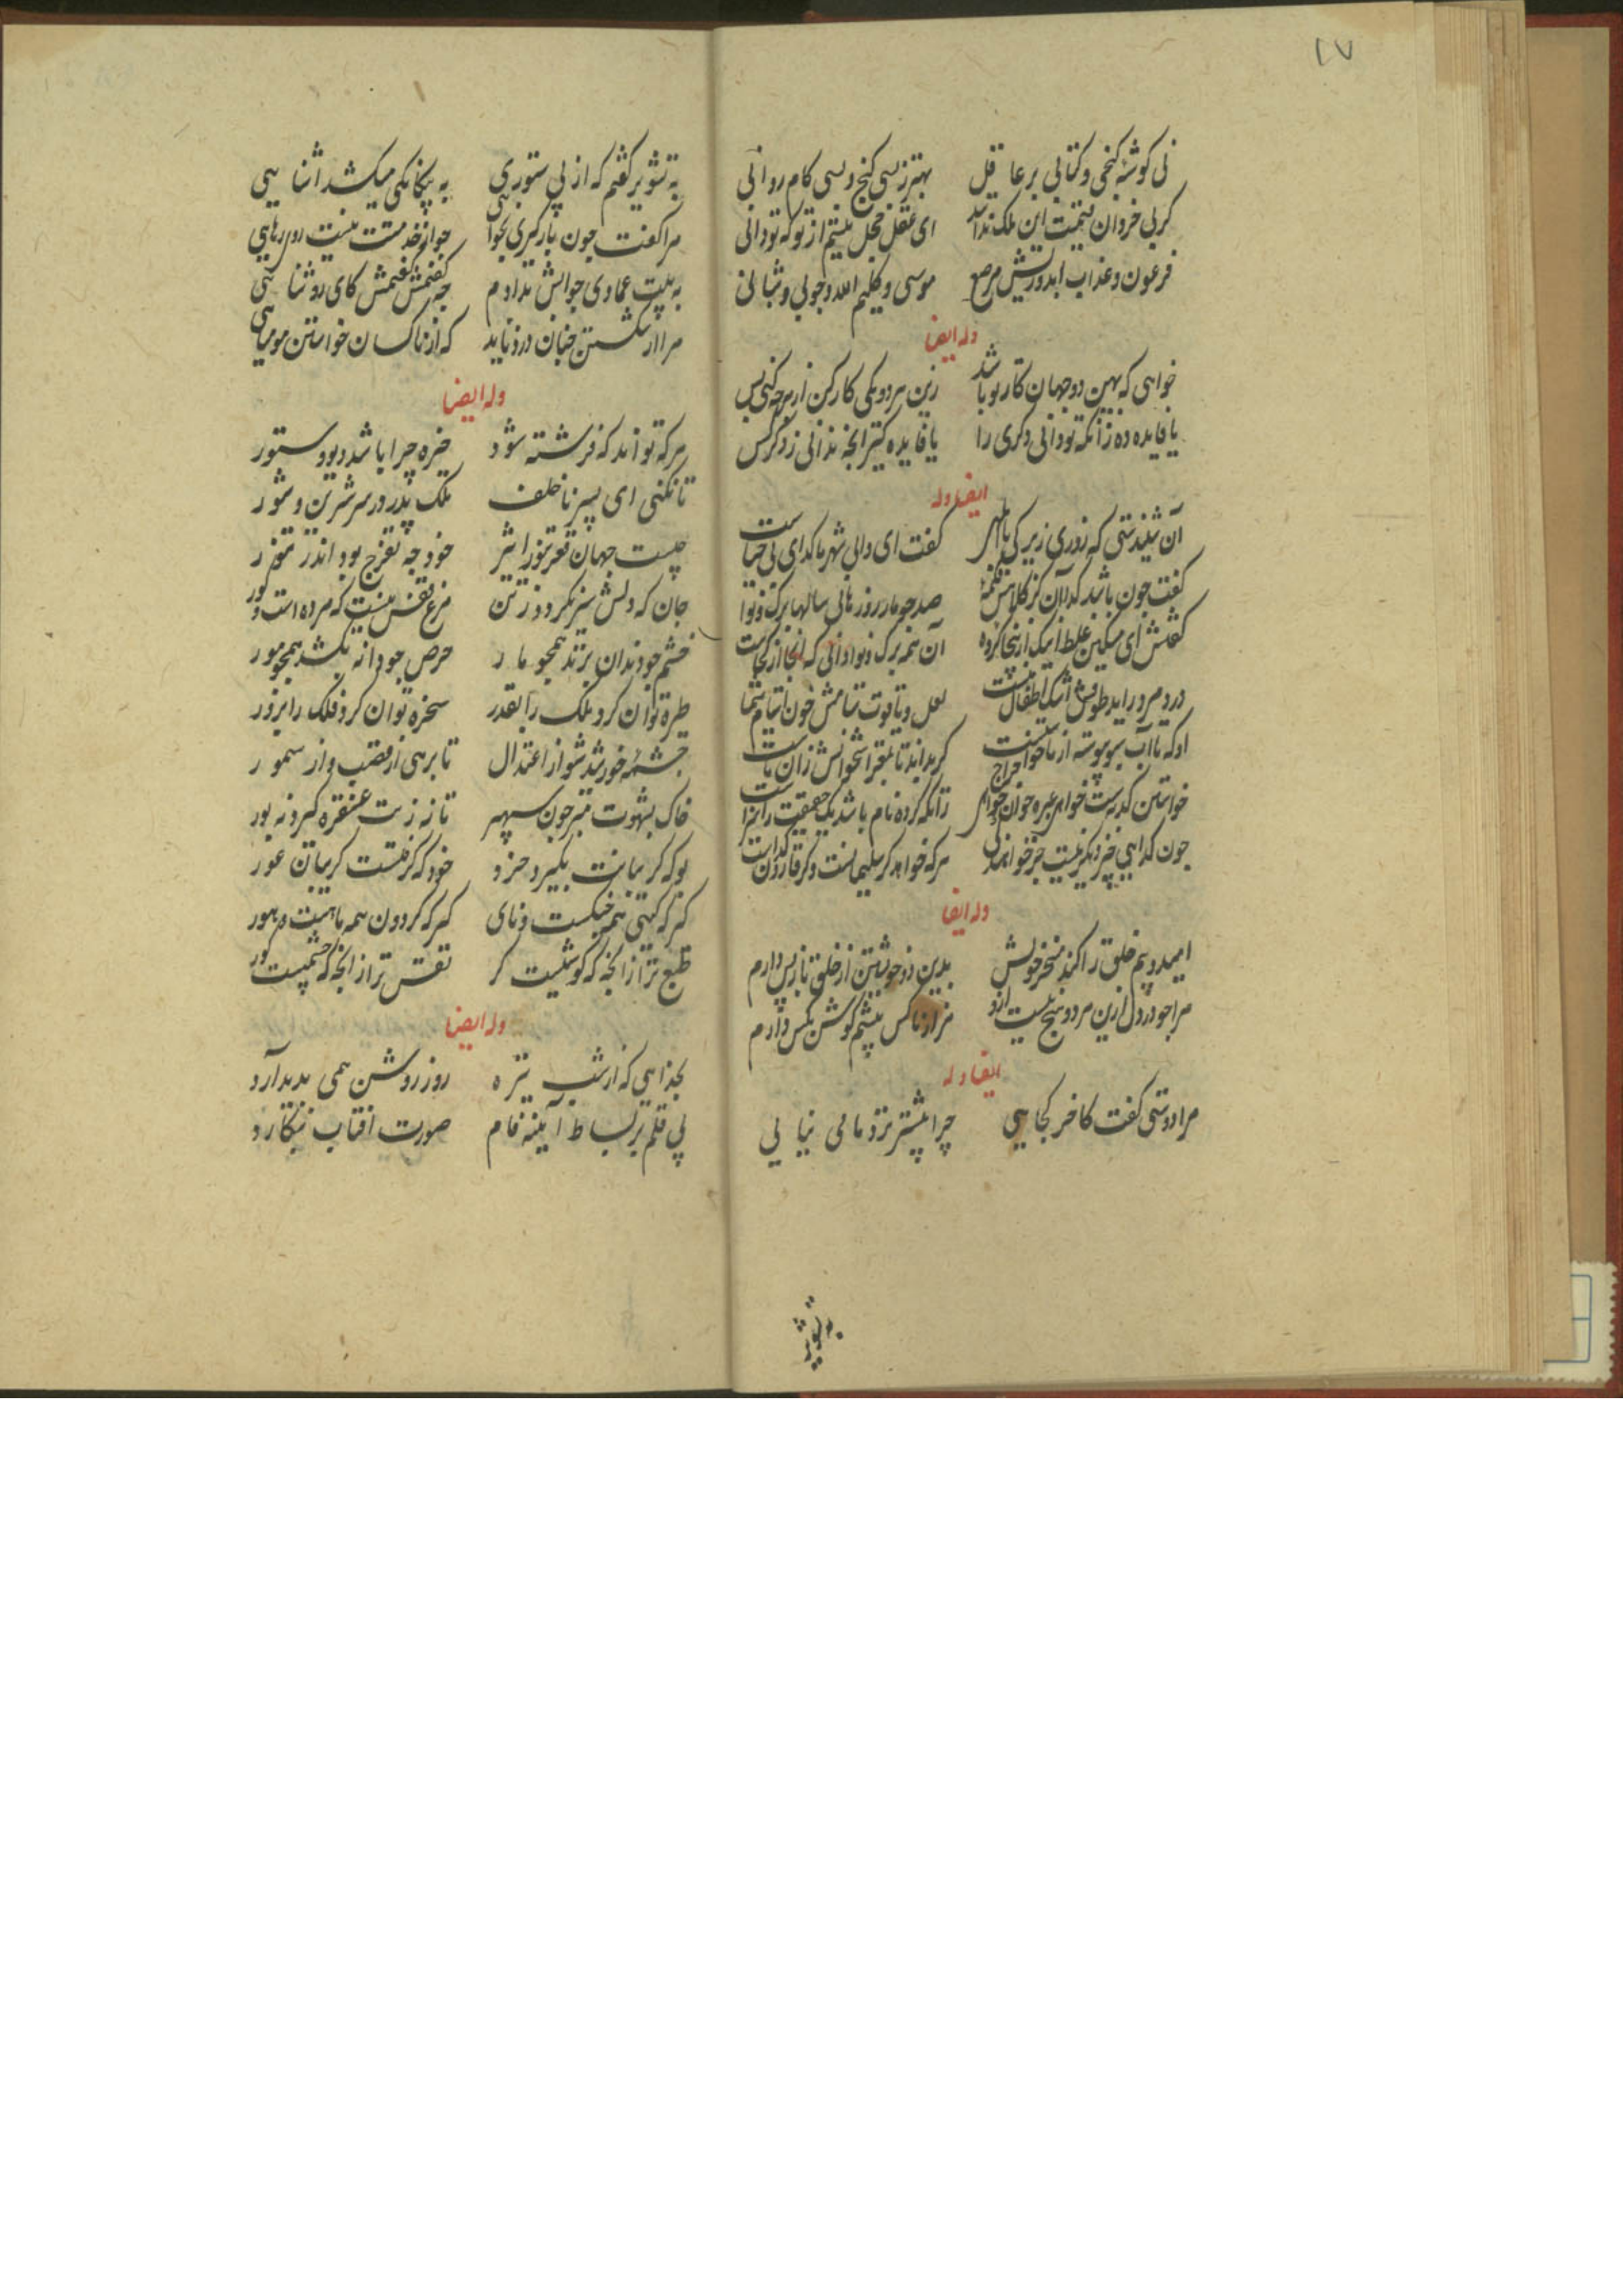 ١٧
نی گوشه کنجی و کتابی بر عاقل
بهتر ز بسی گنج و بسی کام روانی
گر بی خردان قیمت این ملک ندانند
ای عقل خجل نیستم از تو که تو دانی
فرعون و عذاب ابد و ریش مرصع
موسی و کلیم الله و چوبی و شبانی
وله ایضا
خواهی که بهین دو جهان کار تو باشد
زین هر دو یکی کار کن از هرچه کنی بس
یا فایده ده زانکه تو دانی دکری را
یا فایده گیر آنچه ندانی ز دگر کس
ایضا وله
آن شنیدستی که روزی زیرکی با ابلهی
گفت ای والی شهر ما گدای بی حیاست
گفت چون باشد گدا آن کز کلاهش تکمه
صد چو ما را روزها بل سالها برگ و نواست
گفتش ای مسکین غلط اینک ازینجا کرده
آن همه برگ و نوا دانی که آنجا از کجاست
در و مروارید طوقش اشک اطفال منست
لعل و یاقوت ستامش خون ایتام شما
او که تا آب سبو پیوسته از ما خواستست
گر بدانی تا بمغز استخوانش زان ماست
خواستن کدیه است خواهی عشر خوان خواهی خراج
زانکه گر ده نام باشد یک حقیقت را رواست
چون گدایی چیز دیگر نیست جز خواهندگی
هر که خواهد گر سلیمانست و گر قارون گداست
وله ایضا
امید و بیم خلق را کند مسخر خویش
بدین دو خویشتن از خلق باز پس دارم
مرا چو در دل ازین هر دو هیچ نیست ازو
من از ناکس بیشم گوش بکس دارم
ایضا وله
مرا دوستی گفت کاخر کجایی
چرا بیشتر نزد ما می نیایی
به تشویر
به تشویر گفتم که از بی ستوری
به بیگانگی میکشد آشنایی
مرا گفت چون بارگیری نخواهی
چو از خدمتت نیست روی رهایی
به بیت عمادی جوابش بدادم
چه گفتمش گفتمش کای روشنایی
مرا از شکستن چنان درد ناید
که از ناکسان خواستن مومیایی
وله ایضا
هر که تواند که فرشته شود
خیره چرا باشد دیو و ستور
تا نکنی ای پسر ناخلف
ملک پدر در سر شرین و شور
چیست جهان قعر تنور اثیر
خود چه تفرج بود اندر تنور
جان که دلش سیر نگردد ز تن
مرغ قفس نیست که مرده است و گور
خشم چو دندان بزند همچو مار
حرص چو دانه بکشد همچو مور
طره توان کرد ملک را بقدر
سخره توان کرد فلک را بزور
چشمه خورشید شو از اعتدال
تا برهی از قصب و از سمور
خاک بشهوت مسپر چون سپهر
تا نه زنت عنقره گیرد نه بور
بو که گریبانت بگیرد خرد
خود که گرفتست گریبان غور
گیر که گیتی همه چنگست و نای
گیر که گردون همه ماهست و هور
طبع ترا زانچه که گوشیست کر
نفس ترا زانچه که چشمیست کور
وله ایضا
بخدایی که از شب تیره
روز روشن همی پدید آرد
بی قلم بر بساط آینه فام
صورت آفتاب بنگارد